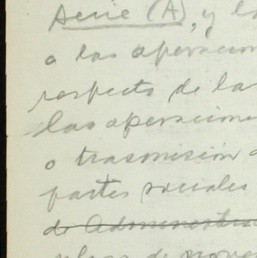 Serie (A), y la
a las operacion
respecto de la
las operacione
o trasmisión d
partes sociales
de Administra